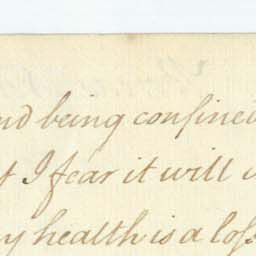 nd being confined
t I fear it will
y health is a loſs